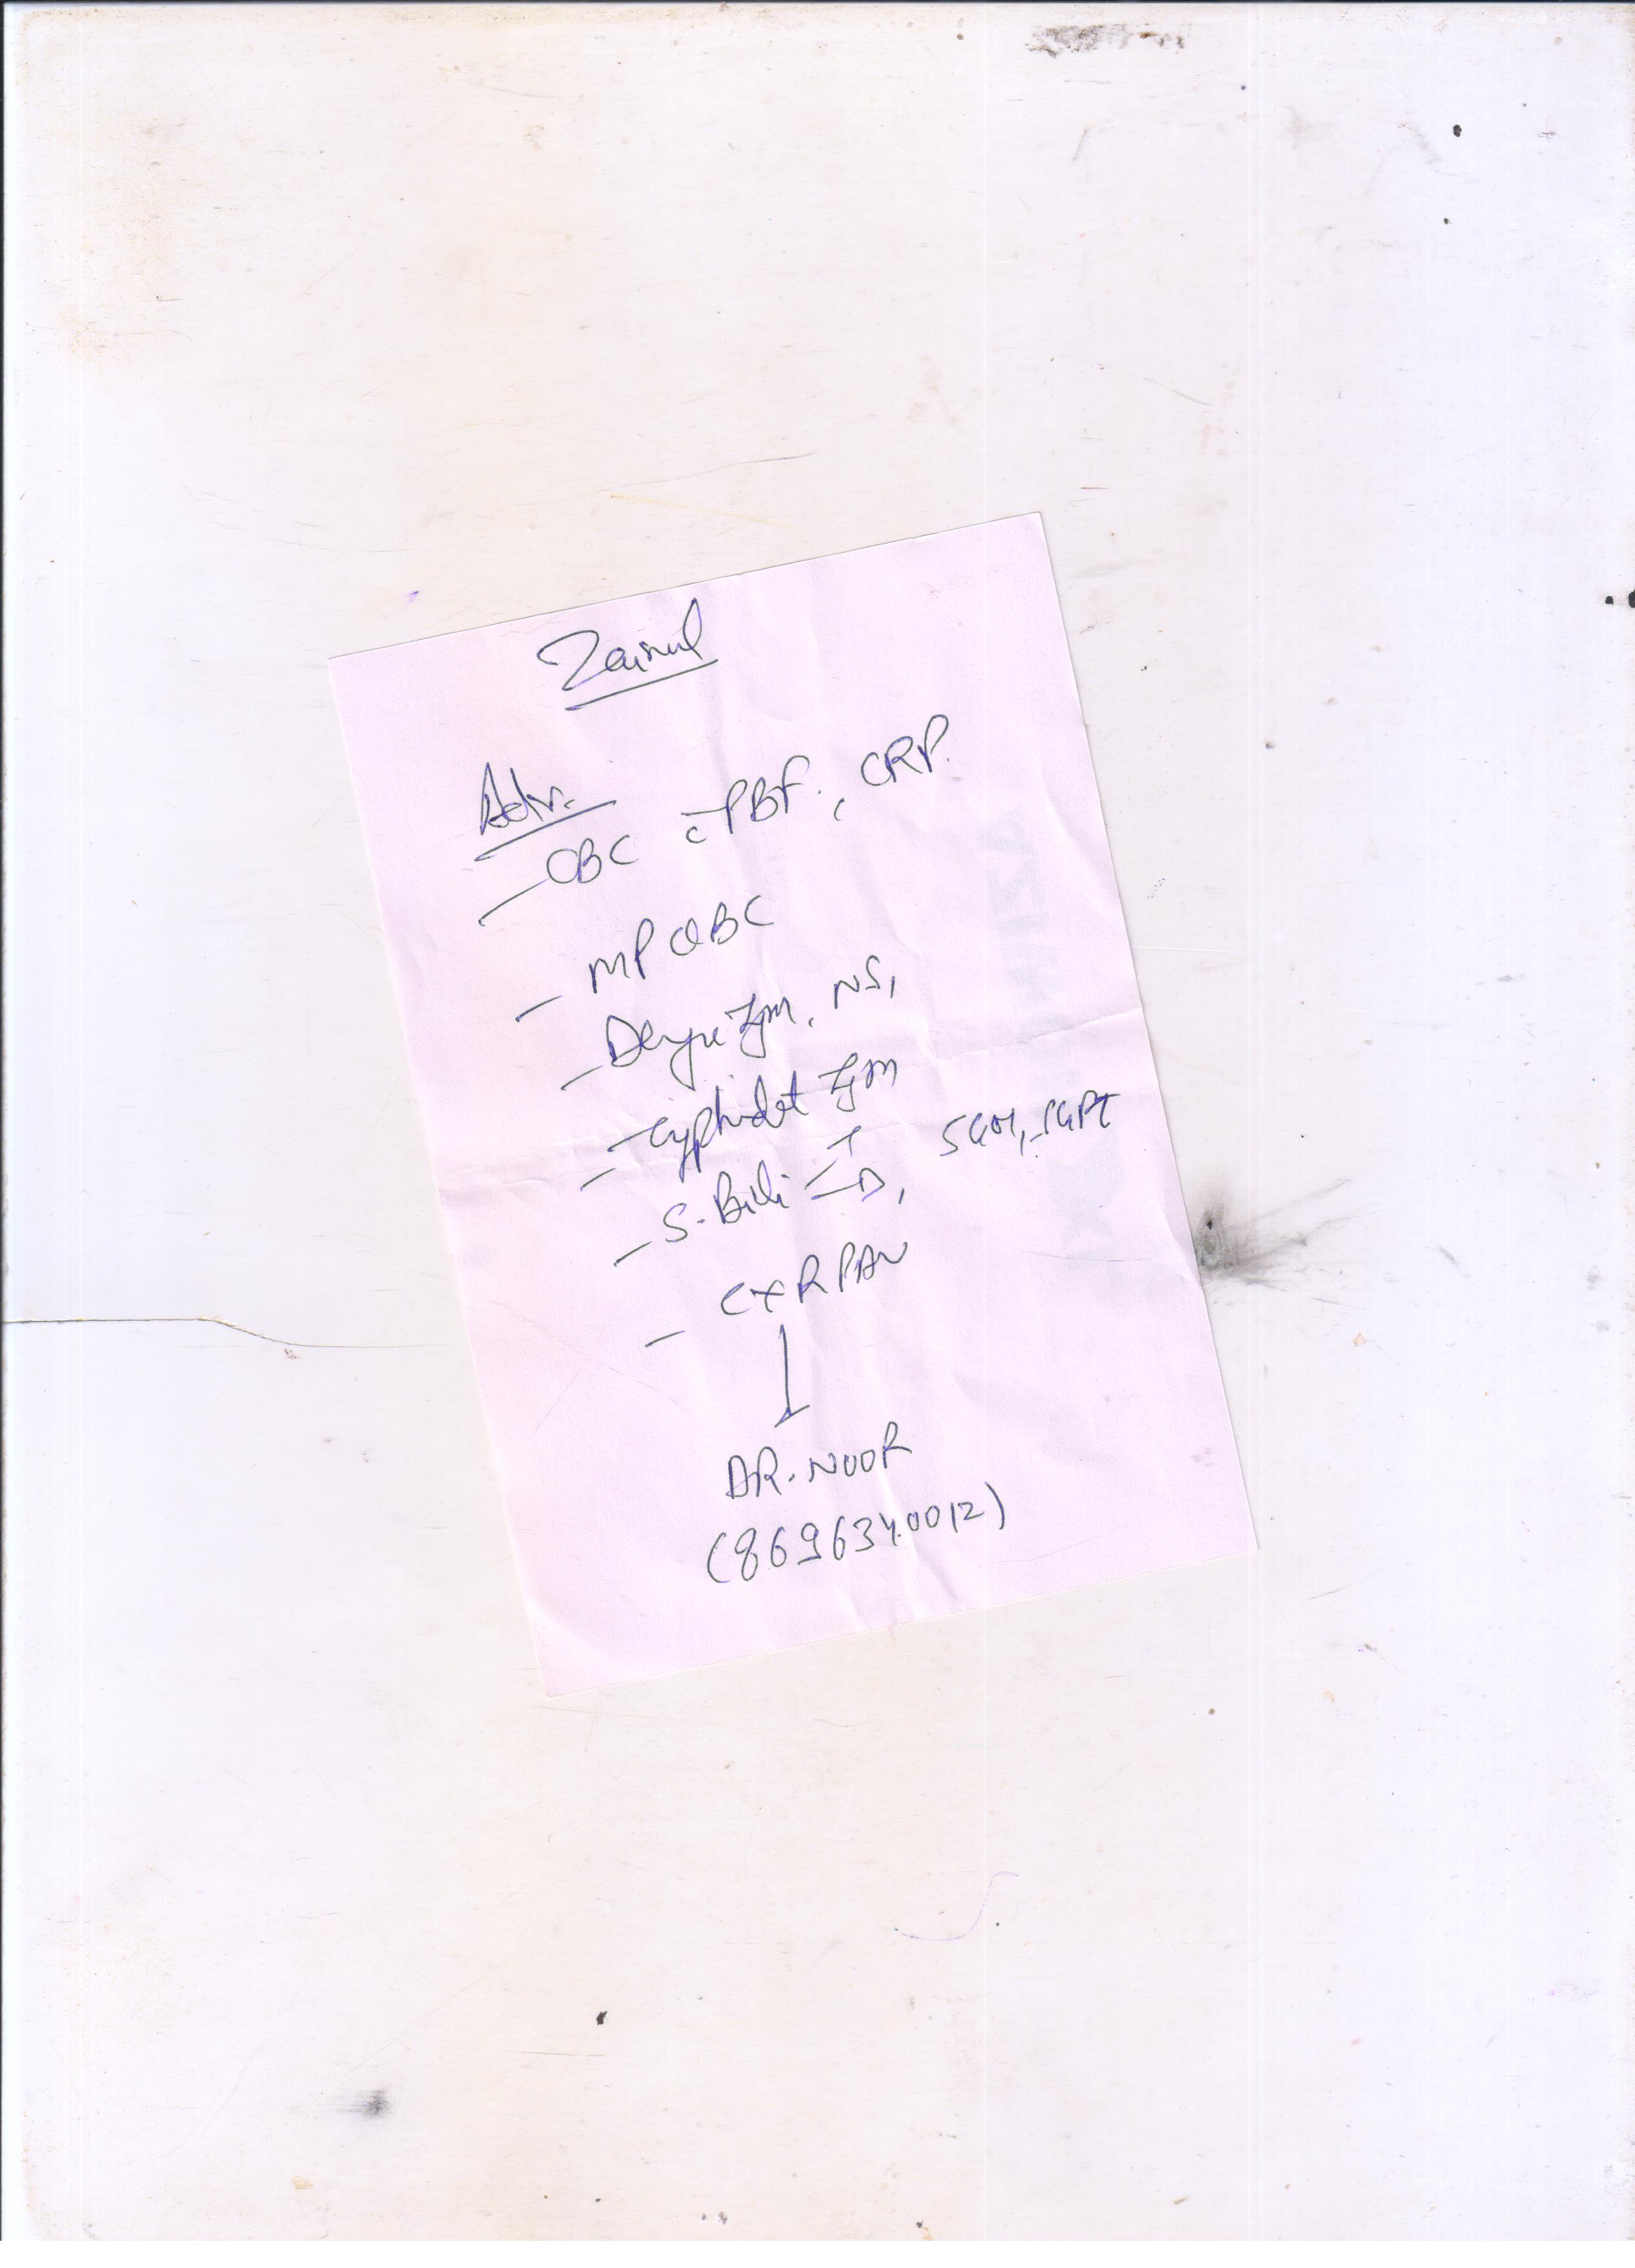 Zainul
Adv.
- CBC c̄ PBF., CRP.
- MP QBC
- Dengue IgM, NS1
- Typhidot IgM
- S. Bili < T D, SGOT, SGPT
- CXR PAV
↓
DR. NOOR
(8696340012)